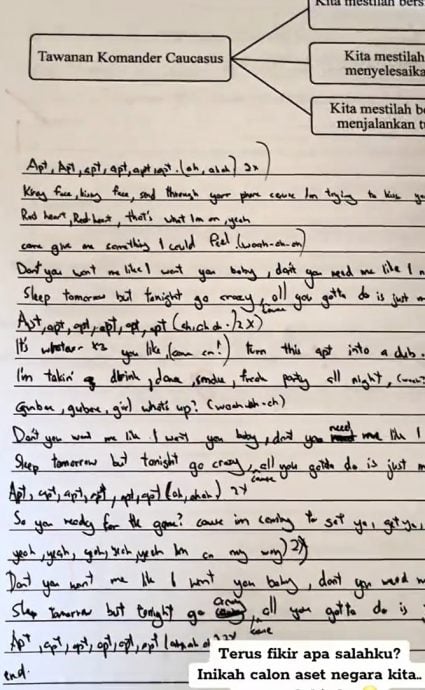 Kita mestilah bers
Tawanan Komander Caucasus
Kita mestilah
menyelesaika
Kita mestilah b
menjalankan t
Apt, Apt, apt, apt, apt, apt. (ah, ahah) 2x
Kissy face, kissy face, send through your phone cause Im trying to kiss yo
Red heart, Red heart, that's what Im on, yeah
come give me something I could feel (woah-oh-oh)
Don't you want me like I want you baby, don't you need me like I n
Sleep tomorrow but tonight go crazy, cause all you gotta do is just m
Apt, apt, apt, apt, apt, apt (ah, ah ah.) 2x)
It's whatever x2 you like, (come on!) turn this apt into a club.
I'm takin' drink, dance, smoke, freak party all night, (
Gunbae, gubae, girl what's up? (woah-oh-oh)
Don't you want me like I want you baby, don't you need me like I
Sleep tomorrow but tonight go crazy, cause all you gotta do is just m
Apt, apt, apt, apt, apt, apt (ah, ahah) 2x
So you ready for the game? cause im coming to get ya, get ya,
yeah, yeah, yeah, yeah, yeah Im on my way) 2x
Dont you want me like I want you baby, don't you need m
Sleep tomorrow but tonight go crazy, cause all you gotta do is
Apt, apt, apt, apt, apt, apt (ahah ah) 2x
end.
Terus fikir apa salahku?
Inikah calon aset negara kita..